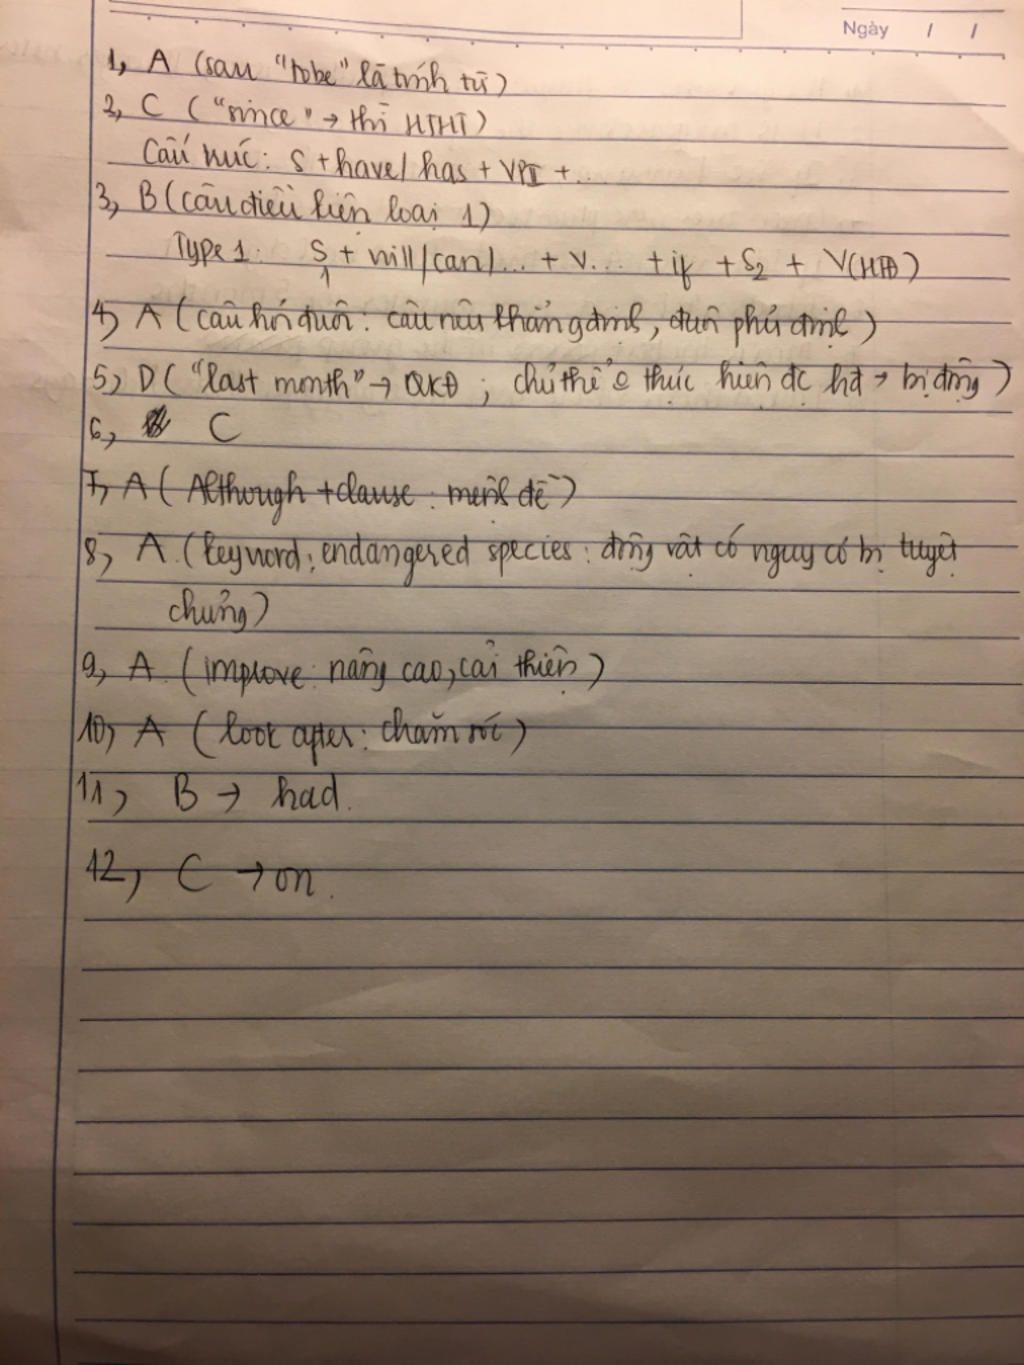 Ngày / /
1, A (sau "tobe" là tính từ)
2, C ("since" → thì HTHT)
Cấu trúc: S + have/ has + VPII + ...
3, B (câu điều kiện loại 1)
Type 1: S1 + will/can/... + V... + if + S2 + V(HTĐ)
4, A (câu hỏi đuôi: câu nêu khẳng định, đuôi phủ định)
5, D ("last month" → QKĐ ; chủ thể o thực hiện đc hđ → bị động)
6, C
7, A (Although + clause: mệnh đề)
8, A (keyword: endangered species: động vật có nguy cơ bị tuyệt
chủng)
9, A (improve: nâng cao, cải thiện)
10, A (look after: chăm sóc)
11, B → had.
12, C → on.